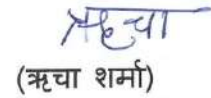 ऋचा
(ऋचा शर्मा)